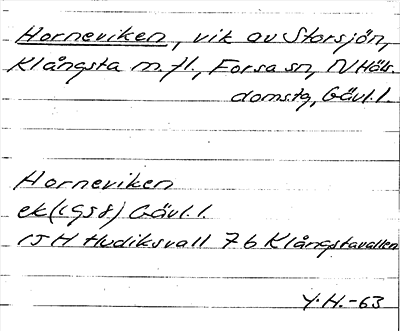 Horneviken, vik av Storsjön,
Klångsta m.fl., Forsa sn, N Häls.
domstg, Gävl. l.
Horneviken
ek (1958) Gävl. l.
15H Hudiksvall 7b Klångstavallen
Y.H.-63